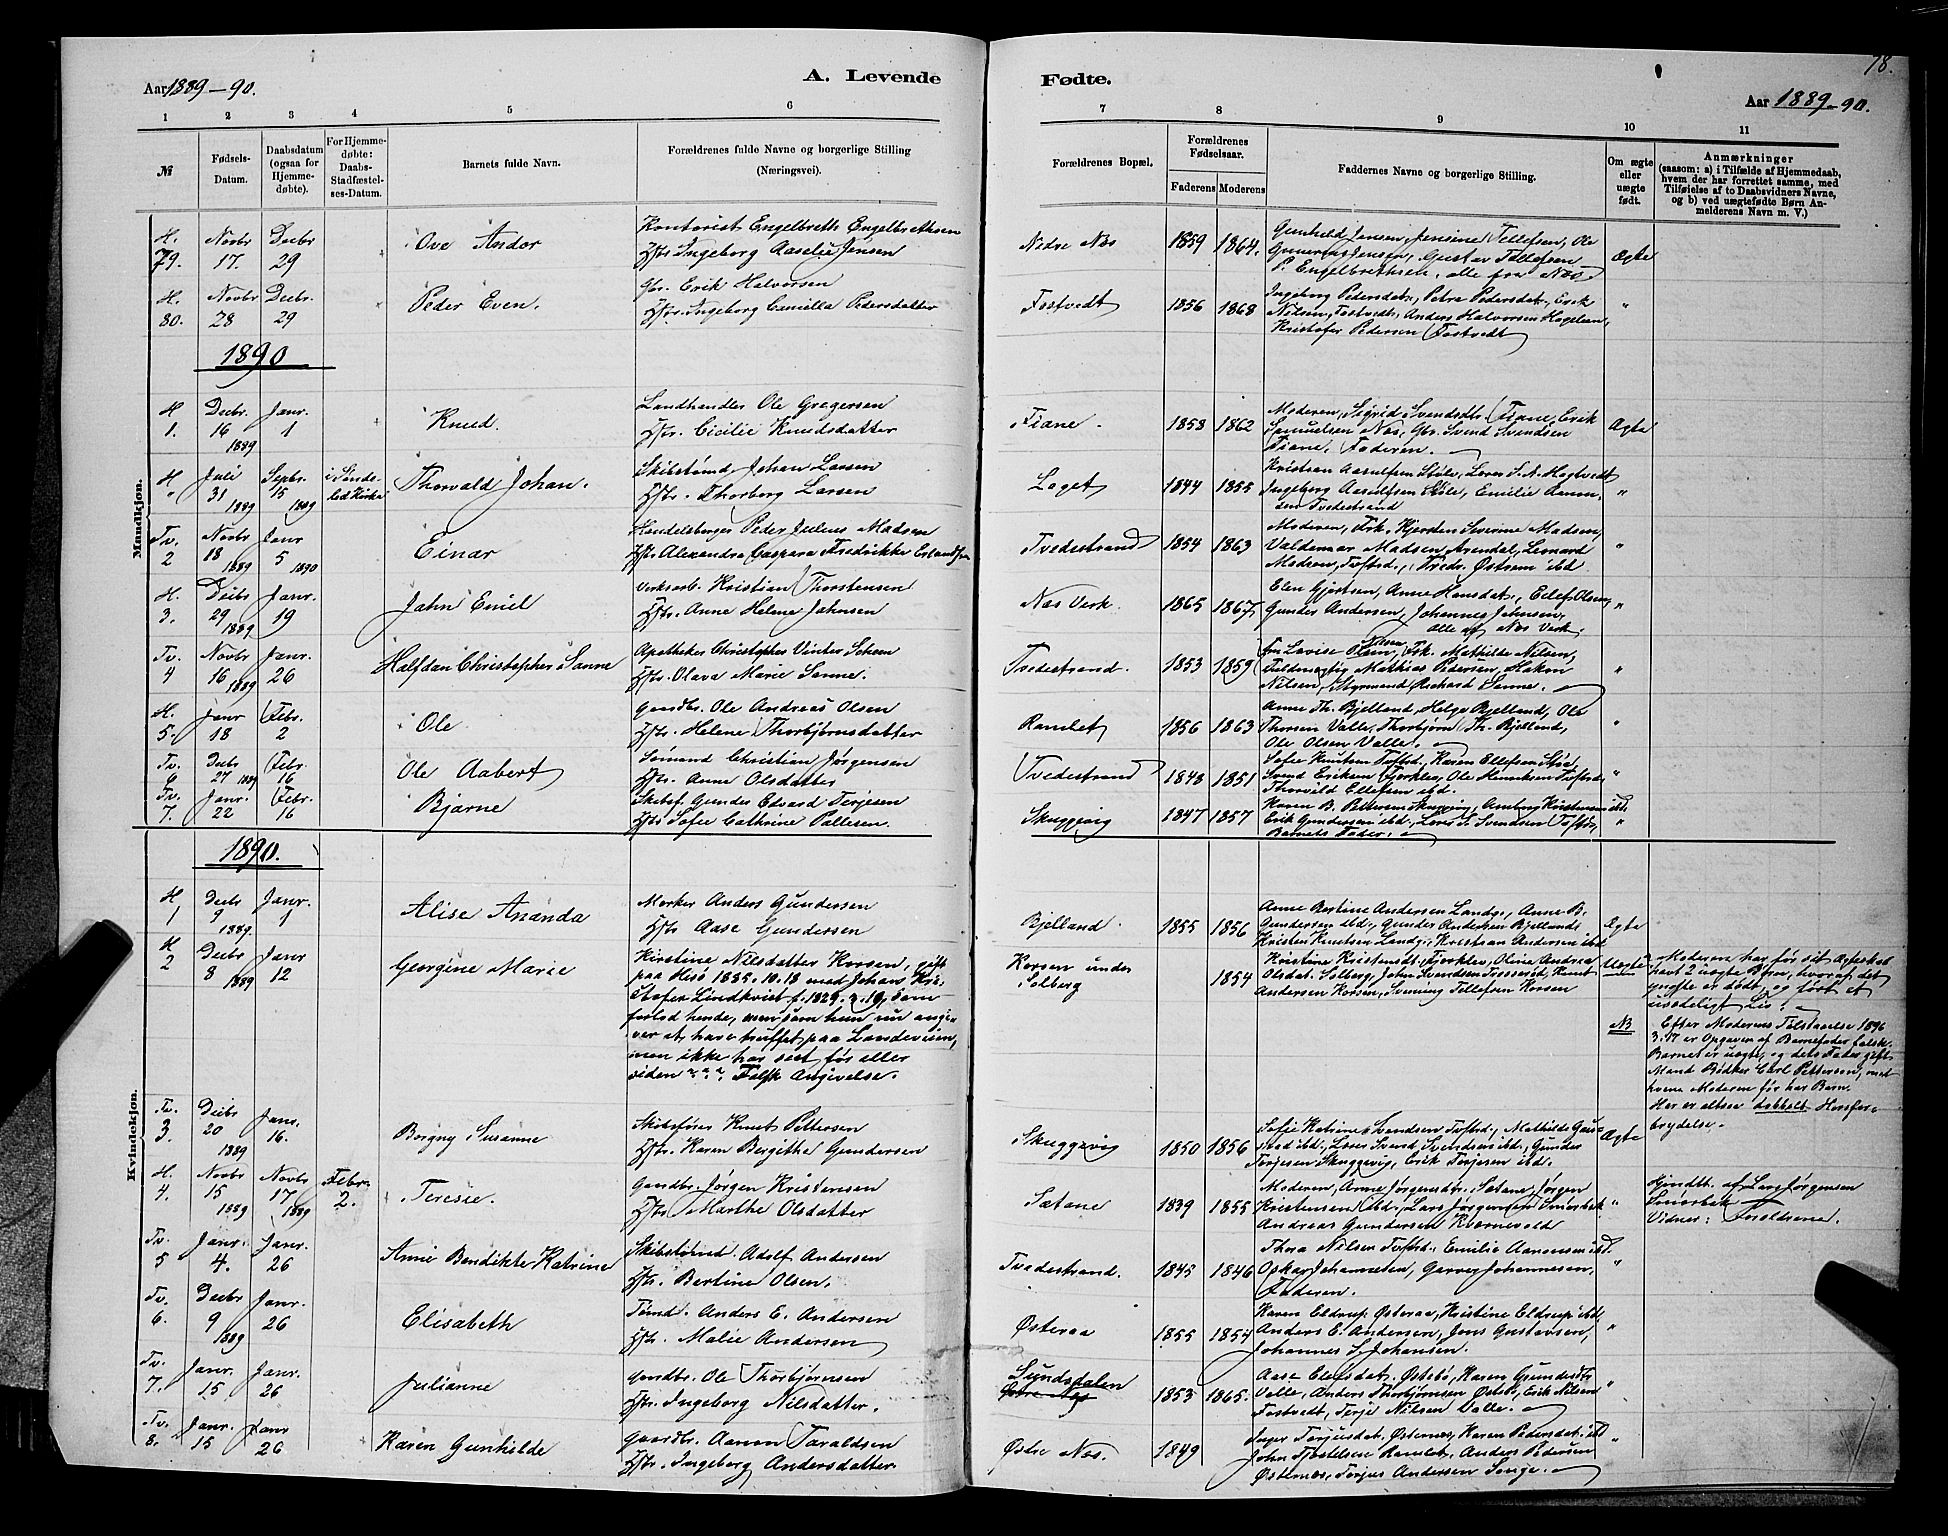 78.
Aar 1889-90.
A. Levende Fødte.
Aar 1889-90.
1 2 3 4 5 6 7 8 9 10 11
№
Fødsels-Datum.
Daabsdatum (ogsaa for Hjemme-døbte).
For Hjemme-døbte: Daabs-Stadfæstel-ses-Datum.
Barnets fulde Navn.
Forældrenes fulde Navne og borgerlige Stilling (Næringsvei).
Forældrenes Bopæl.
Forældrenes Fødselsaar.
Faderens Moderens
Faddernes Navne og borgerlige Stilling.
Om ægte eller uægte født.
Anmærkninger
(saasom: a) i Tilfælde af Hjemmedaab,
hvem der har forrettet samme, med
Tilføielse af to Daabsvidners Navne,
og b) ved uægtefødte Børn An-
melderens Navn m. V.)
Mandkjøn.
H. 79. Novbr 17. Decbr 29
Ove Andor
Kontorist Engelbreth Engelbrethsen
Hstr Ingeborg Aaselie Jensen
Nedre Nes 1859 1864.
Gunhild Jensen, Jensine Tellefsen, Ole
Gunerius Jensen, Gustav Tellefsen
P. Engelbrethsen. alle fra Nes.
Ægte
H. 80. Novbr 28 Decbr. 29
Peder Even.
Gbr. Erik Halvorsen
Hstr. Ingeborg Camilla Pedersdatter
Fostvedt 1856 1868
Ingeborg Pedersdatr., Petra Pedersdat., Erik
Nilsen, Fostvedt, Anders Halvorsen
Kristofer Pedersen Fostvedt
"
1890
H 1. Decbr 16 1889 Janr. 1
Knud.
Landhandler Ole Gregersen
Hstr. Cicilie Knudsdatter
Fiane. 1858 1862
Moderen, Sigrid Svendsdtr. Fiane, Erik
Samuelsen Nes, Gbr. Svend Svendsen
Fiane. Faderen.
Ægte
H " Juli 31 1889 Septbr. 15 1889 i Sønde-led Kirke
Thorvald Johan.
Skibstømd Johan Larsen
Hstr. Thorborg Larsen
Laget 1844 1855
Kristian Aasulfsen Støle, Lovis S. N. Hogtvedt
Ingeborg Aasulfsen Støle, Emilie Aanon-
sen Tvedestrand
"
Tv. 2 Novbr 18 1889 Janr 5 1890
Einar
Handelsborger Peder Julius Madsen
Hstr Alexandra Caspara Fredrikke Erlandsen
Tvedestrand 1854 1863
Moderen, Frk. Kjersten Severine Madsen,
Valdemar Madsen Arendal, Leonard
"
H. 3. Decbr 29 1889 Janr. 19
Jahn Emil
Verksarb. Kristian Thorstensen
Hstr. Anne Helene Jahnsen
Nes Verk. 1865 1867
Elen Gjertsen, Anne Hansdat., Eilef Olsen,
Gunder Andersen, Johannes Johnsen,
Alle af Nes Verk.
"
Tv 4 Novbr 16 1889 Janr. 26
Halfdan Christopher Sanne
Apotheker Christopher Vinter Scheen
Hstr. Olava Marie Sanne.
Tvedestrand. 1853 1859
Fru Lovise Nilsen, Frk. Mathilde Nilsen,
Fuldmægtig Mathias Pedersen, Hakon
Nilsen, Styrmand Richard Sanne.
"
H. 5. Janr 18 Febr. 2
Ole
Gaardbr. Ole Andreas Olsen
Hstr. Helene Thorbjørnsdatter
Ramlet 1856 1863
Anne Th. Bjelland, Helge Bjelland, Ole
Thorsen Valle, Thorbjørn Th. Bjelland,
Ole Olsen Valle.
"
Tv. 6 Decbr 27 1889 Febr. 16
Ole Aabert
Sømand Christian Jørgensen
Hstr. Anne Olsdatter
Tvedestrand 1848 1851
Sofie Knutsen Tvstrd., Karen Ellefsen
Svend Eriksen Fjorklev, Ole Henriksen Tvstrd.
Thorvild Ellefsen ibd.
"
Tv. 7. Janr. 22 Febr. 16
Bjarne
Skibsf. Gunder Edvard Terjesen
Hstr Sofie Cathrine Pallesen.
Skuggevig 1847 1857
Karen B. Pettersen Skuggevig, Amborg Kristensen ibd.
Erik Gundersen ibd., Lovis S. Svendsen Tvstrd,
Barnets Fader.
"
Kvindekjøn.
1890.
H 1 Decbr 9 1889. Janr. 1
Alise Ananda
Murker Anders Gundersen
Hstr Aase Gundersen
Bjelland. 1855 1856
Anne Bertine Andersen Landg., Anne B.
Gundersen ibd., Gunder Andersen Bjelland,
Kristen Knutsen Landg., Kristian Andersen ibd.
Ægte
H 2 Decbr 8 1889 Janr 12
Georgine Marie
Kirstine Nilsdatter Korsen, gift
paa Hisø 1885.10.18 med Johan Kri-
stofer Lindkvist f. 1829.2.19, som
forlod hende, men som hun nu angi-
ver at have truffet paa Landeveien,
men ikke har seet før eller
siden " " ". Falsk Angivelse.
Korsen under Solberg 1854
Kristine Kristensdt. Fjorklev, Olivia Andrea
Olsdat. Solberg, John Svendsen Trosserød, Knut
Andersen Korsen, Svenning Tellefsen Korsen
Uægte
Moderen har før sit Ægteskab
havt 2 uægte Børn, hvoraf det
yngste er dødt, og ført et
usædeligt Liv.
NB Efter Moderens Tilstaaelse 1896
3.17 er Opgaven af Barnefader falsk.
Barnet er uægte, og dets Fader gift
Mand Bødker Carl Pettersen, med
hvem Moderen før har Barn.
Her er altsaa dobbelt Horsfor-
brydelse.
Tv. 3. Decbr 20 1889 Janr. 16.
Borgny Susanne
Skibsfører Knut Pettersen
Hstr. Karen Bergithe Gundersen
Skuggevig 1850 1856
Sofie Katrine Svendsen Tvstrd., Mathilde Gun-
stad ibd., Lovis Svend Svendsen ibd., Gunder
Terjesen Skuggevig, Erik Terjesen ibd.
Ægte
H. 4. Novbr 15 1889 Novbr 17 1889 Febr. 2.
Teresie.
Gaardbr. Jørgen Kristensen
Hstr Marthe Olsdatter
Satane 1839 1855
Moderen, Anne Jørgensdtr. Satane, Jørgen
Kristensen ibd., Lars Jørgensen Smørbek
Andreas Gundersen Kvernevold
"
Hjmdbt. af Lars Jørgensen
Smørbek
Vidner: Forældrene.
Tv. 5 Janr. 4. Janr. 26
Anne Bendikte Katrine
Skibstømd. Adolf Andersen
Hstr. Bertine Olsen.
Tvedestrand. 1845 1846
Thora Nilsen Tvstrd., Emilie Aanonsen ibd.
Oskar Johannesen, Garver Johannesen,
Faderen.
"
Tv. 6. Decbr 9 1889 Janr. 26
Elisabeth
Tømd. Anders E. Andersen
Hstr. Malie Andersen
Østeraa 1855 1854
Karen Eldrup Østeraa, Kristine Eldrup ibd.
Anders E. Andersen, Jens Gustavsen,
Johannes S. Johansen.
"
Tv. 7. Janr. 15 Janr. 26
Julianne
Gaardbr. Ole Thorbjørnsen
Hstr. Ingeborg Nilsdatter.
Sundsdalen
Østre Nes 1853 1865.
Aase Elefsdat. Østebø, Karen Gundersdtr
Valle, Anders Thorbjørnsen Østebø, Erik Nilsen
Fostvedt, Terje Nilsen Valle.
"
Tv. 8. Janr. 15 Janr 26
Karen Gunhilde
Gaardbr. Aanon Taraldsen
Hstr. Ingeborg Andersdatter.
Østre Nes. 1849
Inger Terjusdat. Østernes, Karen Pedersdat. ibd
John Tjostelsen Ramlet, Anders Pedersen
Østernes, Terjus Andersen Songe.
"